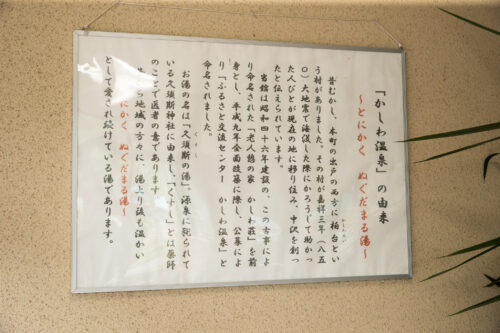 「かしわ温泉」の由来
～とにかく　ぬくだまる湯～
昔むかし、本町の出戸の西方に柏台とい
う村がありました。その村が嘉祥三年（八五
〇）大地震で海没した際にかろうじて助かっ
た人びとが現在の地に移り住み、中沢を創っ
たと伝えられています。
当館は昭和四十六年建設の、この古事によ
り命名された「老人憩の家　かしわ荘」を前
身とし、平成九年全面改築に際し、公募によ
り「ふるさと交流センター　かしわ温泉」と
命名されました。
お湯の名は「久須斯の湯」。源泉に祀られて
いる久須斯神社に由来し、「くすし」とは薬師
のことで医者の意であります
から地域の方々に、湯上り後も温かい
にかく　ぬくだまる湯～
として愛され続けている湯であります。